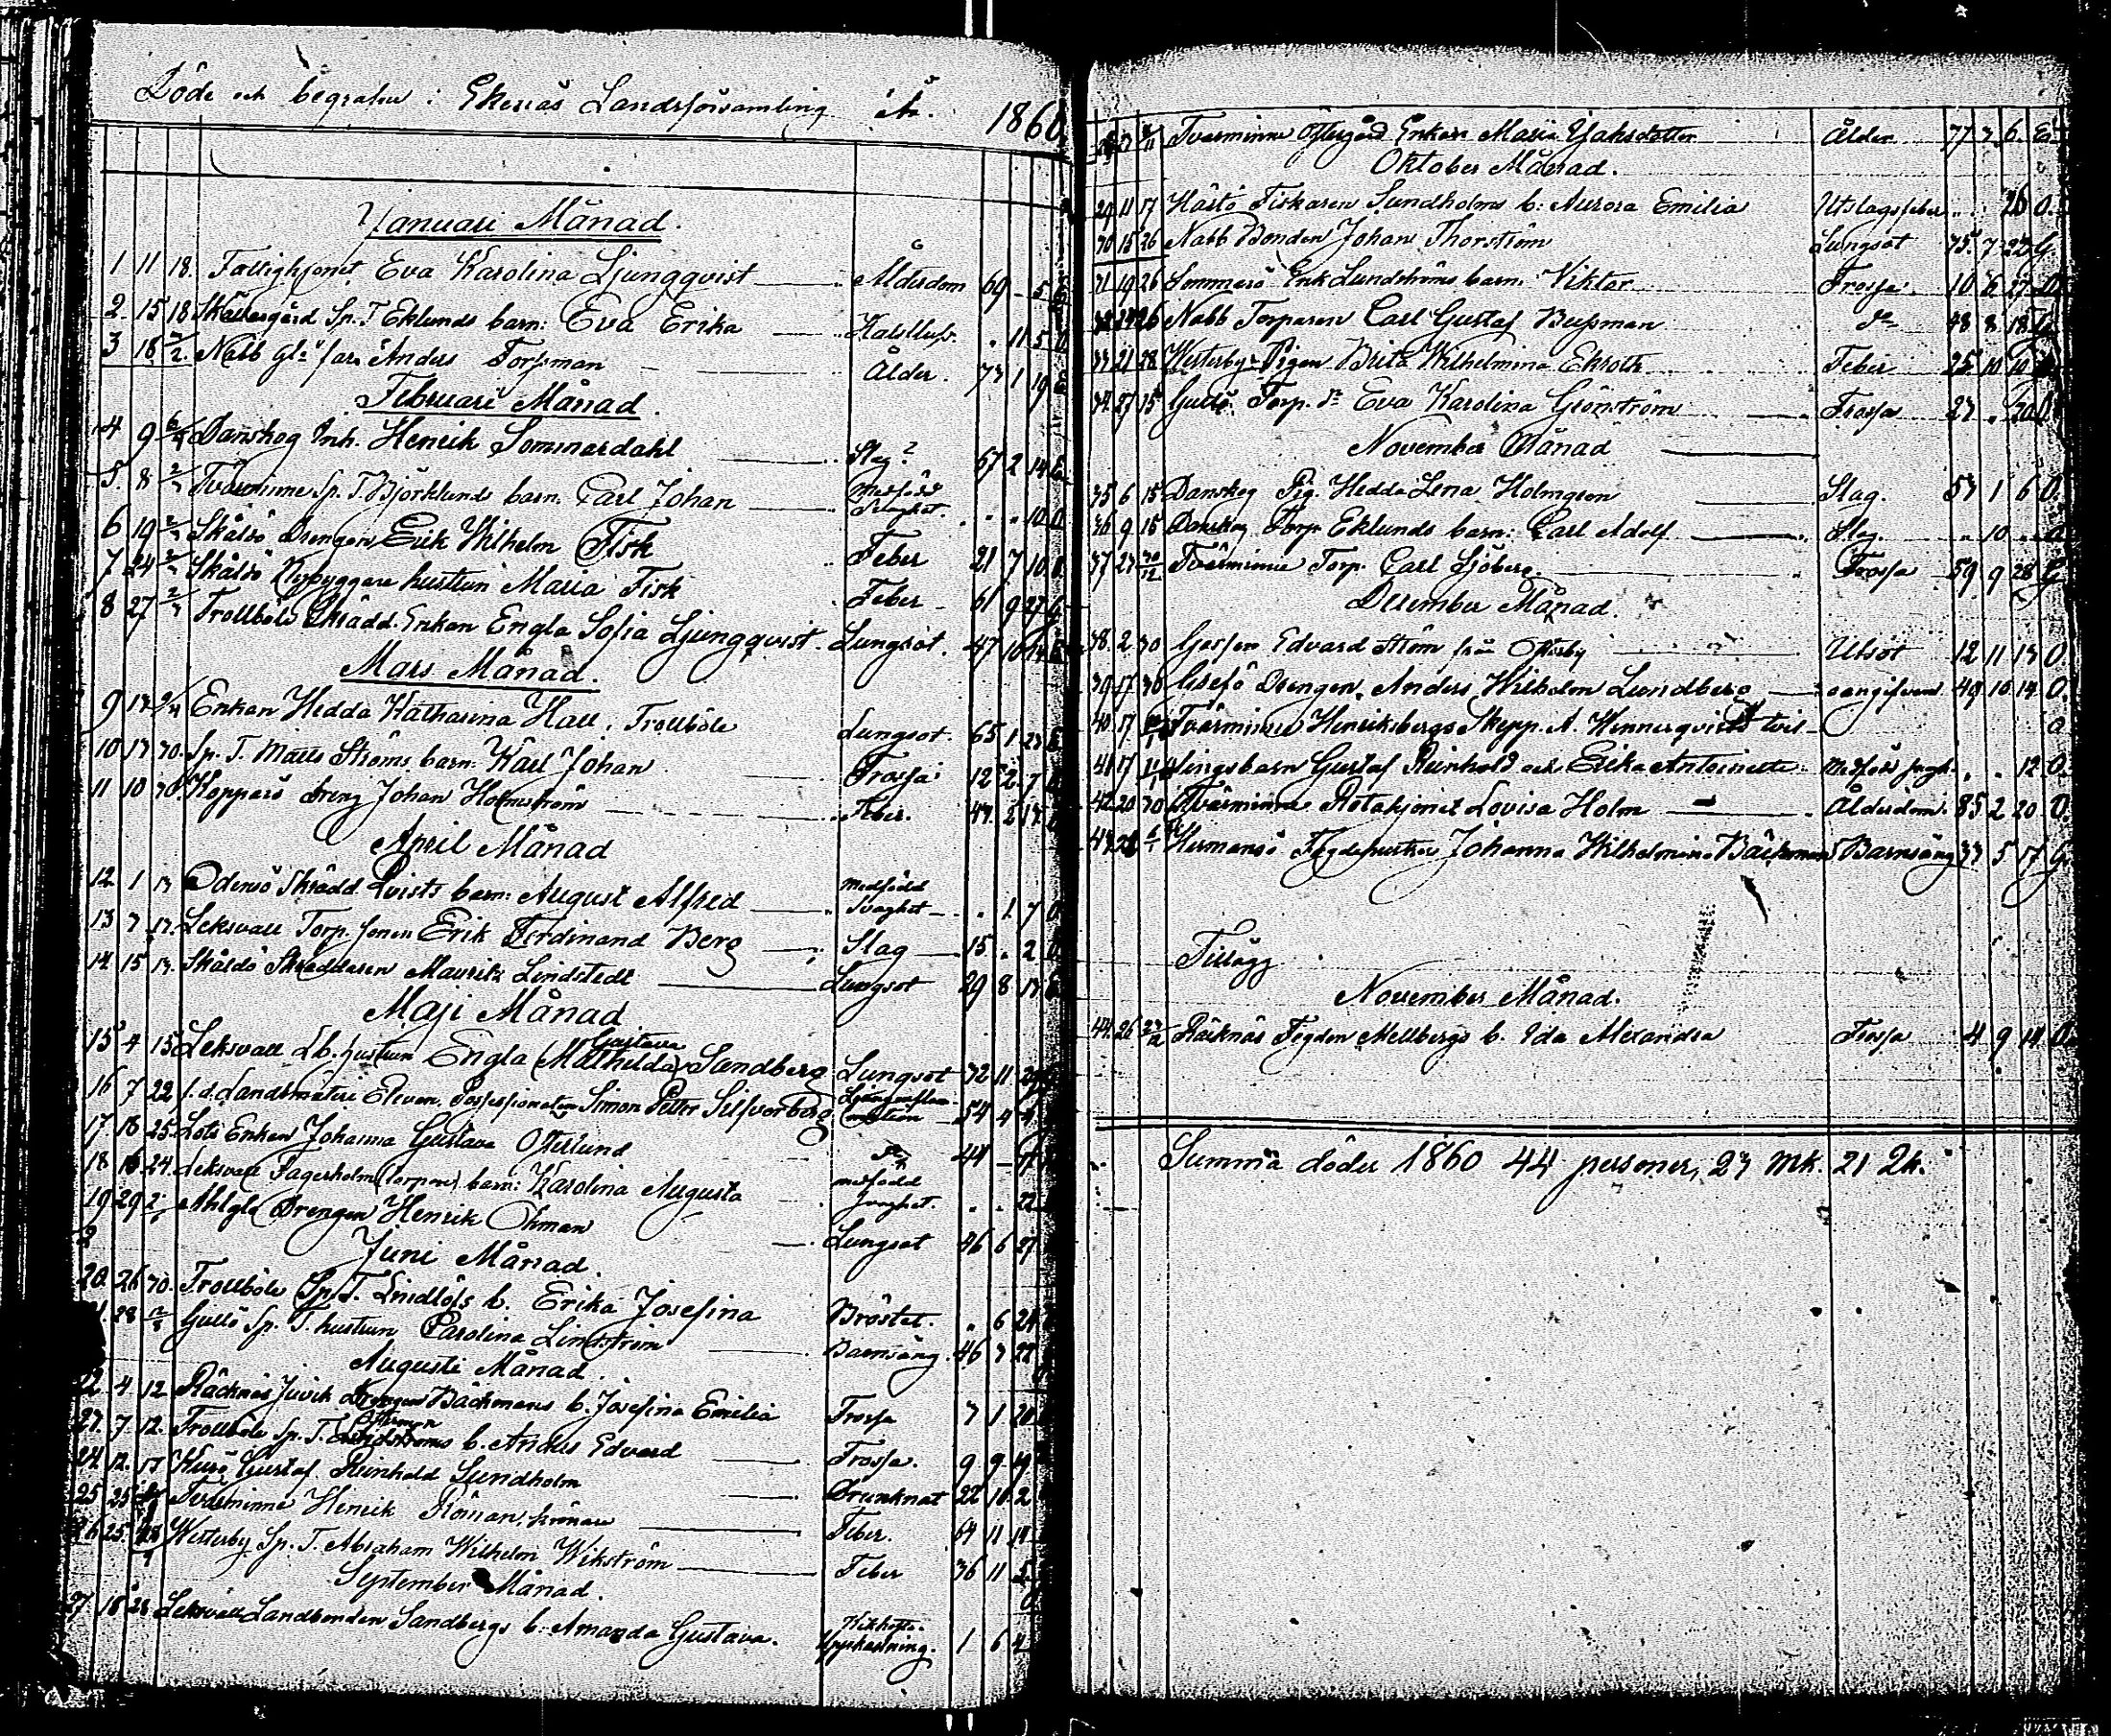 Döde och begrafne i Ekenäs Landsförsamling År 1860
Januari Månad.
1 11 18. Fattighjonet Eva Karolina Ljungqvist Ålderdom 69 - 5 E
2. 15 18 Skärgård Sp. T Eklunds barn: Eva Erika 11 5 O
3 18 2/2. Nabb Gl: far Anders Torpman Ålder. 73 1 19 E
Februari Månad.
4 9 Danskog Inh. Henrik Sommardahl Slag? 67 2 14 E
5. 8 Tvärminne Sp. T. Björklunds barn. Carl Johan Medfödd Svaghet. " " 10 O
6 19 Skåldö Drengen Erik Wilhelm Fisk Feber 21 7 10 O
7 24 Skåldö Nybyggare hustrun Maria Fisk Feber 61 9 27 G
8 27 2/3 Trollböle Skrädd. Enkan Engla Sofia Ljungqvist. Lungsot. 47 10 14 E
Mars Månad.
9 13 Enkan Hedda Katharina Hall, Trollböle Lungsot. 65 1 23 E
10 13 30. Sp. T. Matts Ströms barn: Karl Johan Frossa 12 2 7 O
11 10 30 Kopparö dreng Johan Holmström Feber. 43 2 13 O
April Månad
12 1 13 Odensö Skrädd Qvists barn: August Alfred Medfödd Svaghet " 1 7 O
13 7 17. Leksvall Torp. sonen Erik Ferdinand Berg Slag 15 " 2 O
14. 15 13. Skåldö Skräddaren Maurits Lindstedt Lungsot 29 8 13 E
Maji Månad
Gustava
15 4 15 Leksvall Lb. hustrun Engla (Mathilda) Sandberg Lungsot 32 11
16 7 22 f.d. Landtmäteri Eleven, Possessionaten Simon Petter Silfverberg 54 4
17. 18 25 Enkan Johanna Gustava Österlund 44
18 16 24. Leksvall Fagerholm (torpare) barn: Karolina Augusta medfödd svaghet. " " 22
19 29 2/6 Ahlglo Drengen Henrik Öhman Lungsot 46 6 27
Juni Månad.
20. 26 30. Trollböle Sp. T. Lindlöfs b. Erika Josefina Bröstet. " 6 24
28 Gullö Sp. T. hustrun Carolina Lindström Barnsäng. 46 3 22
Augusti Månad.
22 4 12 Räcknäs Juvik Drengen Bäckmans b. Josefina Emilia Frossa 7 1 20
23. 7 12. Trollböle Sp. T. b. Anders Edvard Frossa. 9 9 19
24 12. 17 Gustaf Reinhold Sundholm Drunknat 22 10 2
25 Tvärminne Henrik Röman, krönare Feber. 64 11 14
26 25 Westerby Sp. T. Abraham Wilhelm Wikström Feber 36 11 5
September Månad.
27. 18 23 Leksvall Landbonden Sandbergs b. Amanda Gustava. Kikhosta. Uppkastning. 1 6 4
28 Tvärminne Östergård Enkan Maria Jakobsdotter Ålder 77 7 6. E
Oktober Månad.
29 11 17 Hästö Fiskaren Sundholms b: Aurora Emilia Utslagsfeber " " 26 O.
30 15 26 Nabb Bonden Johan Thorström Lungsot 75. 7 23 G
31 19 26 Sommarö Enk Lundströms barn: Viktor Frossa 10 6 27 O.
32 24 26 Nabb Torparen Carl Gustaf Bussman 48 8 18 G
33 21 28 Westerby Pigan Brita Wilhelmina Ekroth Feber 25 10 10
34. 27 15 Gullö Torp. Eva Karolina Grönström Frossa 23 " 20
November Månad
35 6 15 Danskog Pig. Hedda Lena Holmgren Slag. 53 1 6 O.
36 9 15 Danskog Torp Eklunds barn: Carl Adolf Slag. " 10 " O
37 23 30/12 Tvärminne Torp. Carl Sjöberg. Frossa 59 9 28 G
December Månad.
38. 2. 30 Gossen Edvard Ström från Österby Utsot 12 11 13 O.
39 17 30 Drengen Anders Wilhelm Lundberg oangifven 49 10 14 O.
40. 17 Tvärminne Henriksbergs Skepp. A. Hinnerqvists tvil-
41 17 lingsbarn Gustaf Reinhold och Erika Antoinette Medfödd svagh. " " 12 O.
42 20 30 Tvärminne Rotehjonet Lovisa Holm Ålderdom. 85 2 20 O.
43 Hermansö Fogdehustru Johanna Wilhelmina Bäckman Barnsäng 33 5 17 G
Tillägg
November Månad.
44. 26 Räcknäs Fogden Mellbergs b. Ida Alexandra Frossa 4 9 14 O
Summa döder 1860 44 personer, 23 Mk. 21 Qk.